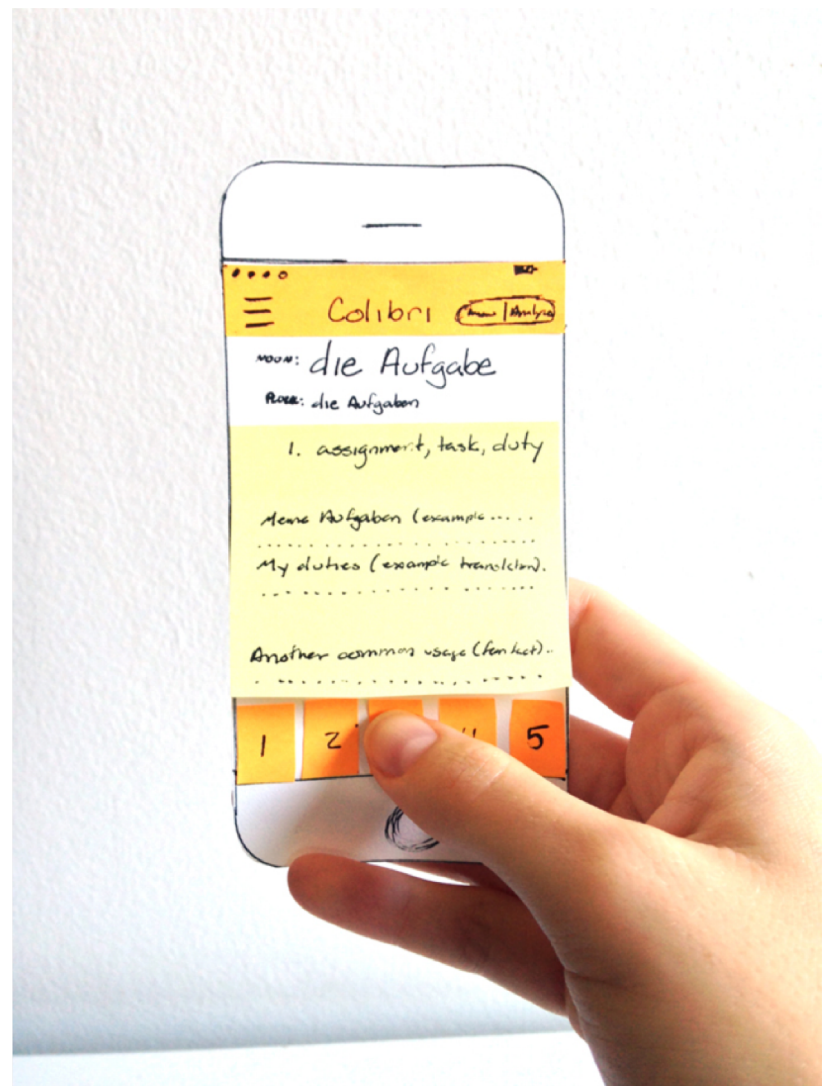 Colibri | Analyze
NOUN: die Aufgabe
PLURAL: die Aufgaben
1. assignment, task, duty
Meine Aufgaben (example.....
My duties (example translation).
Another common usage (fun fact)..
1 2 4 5